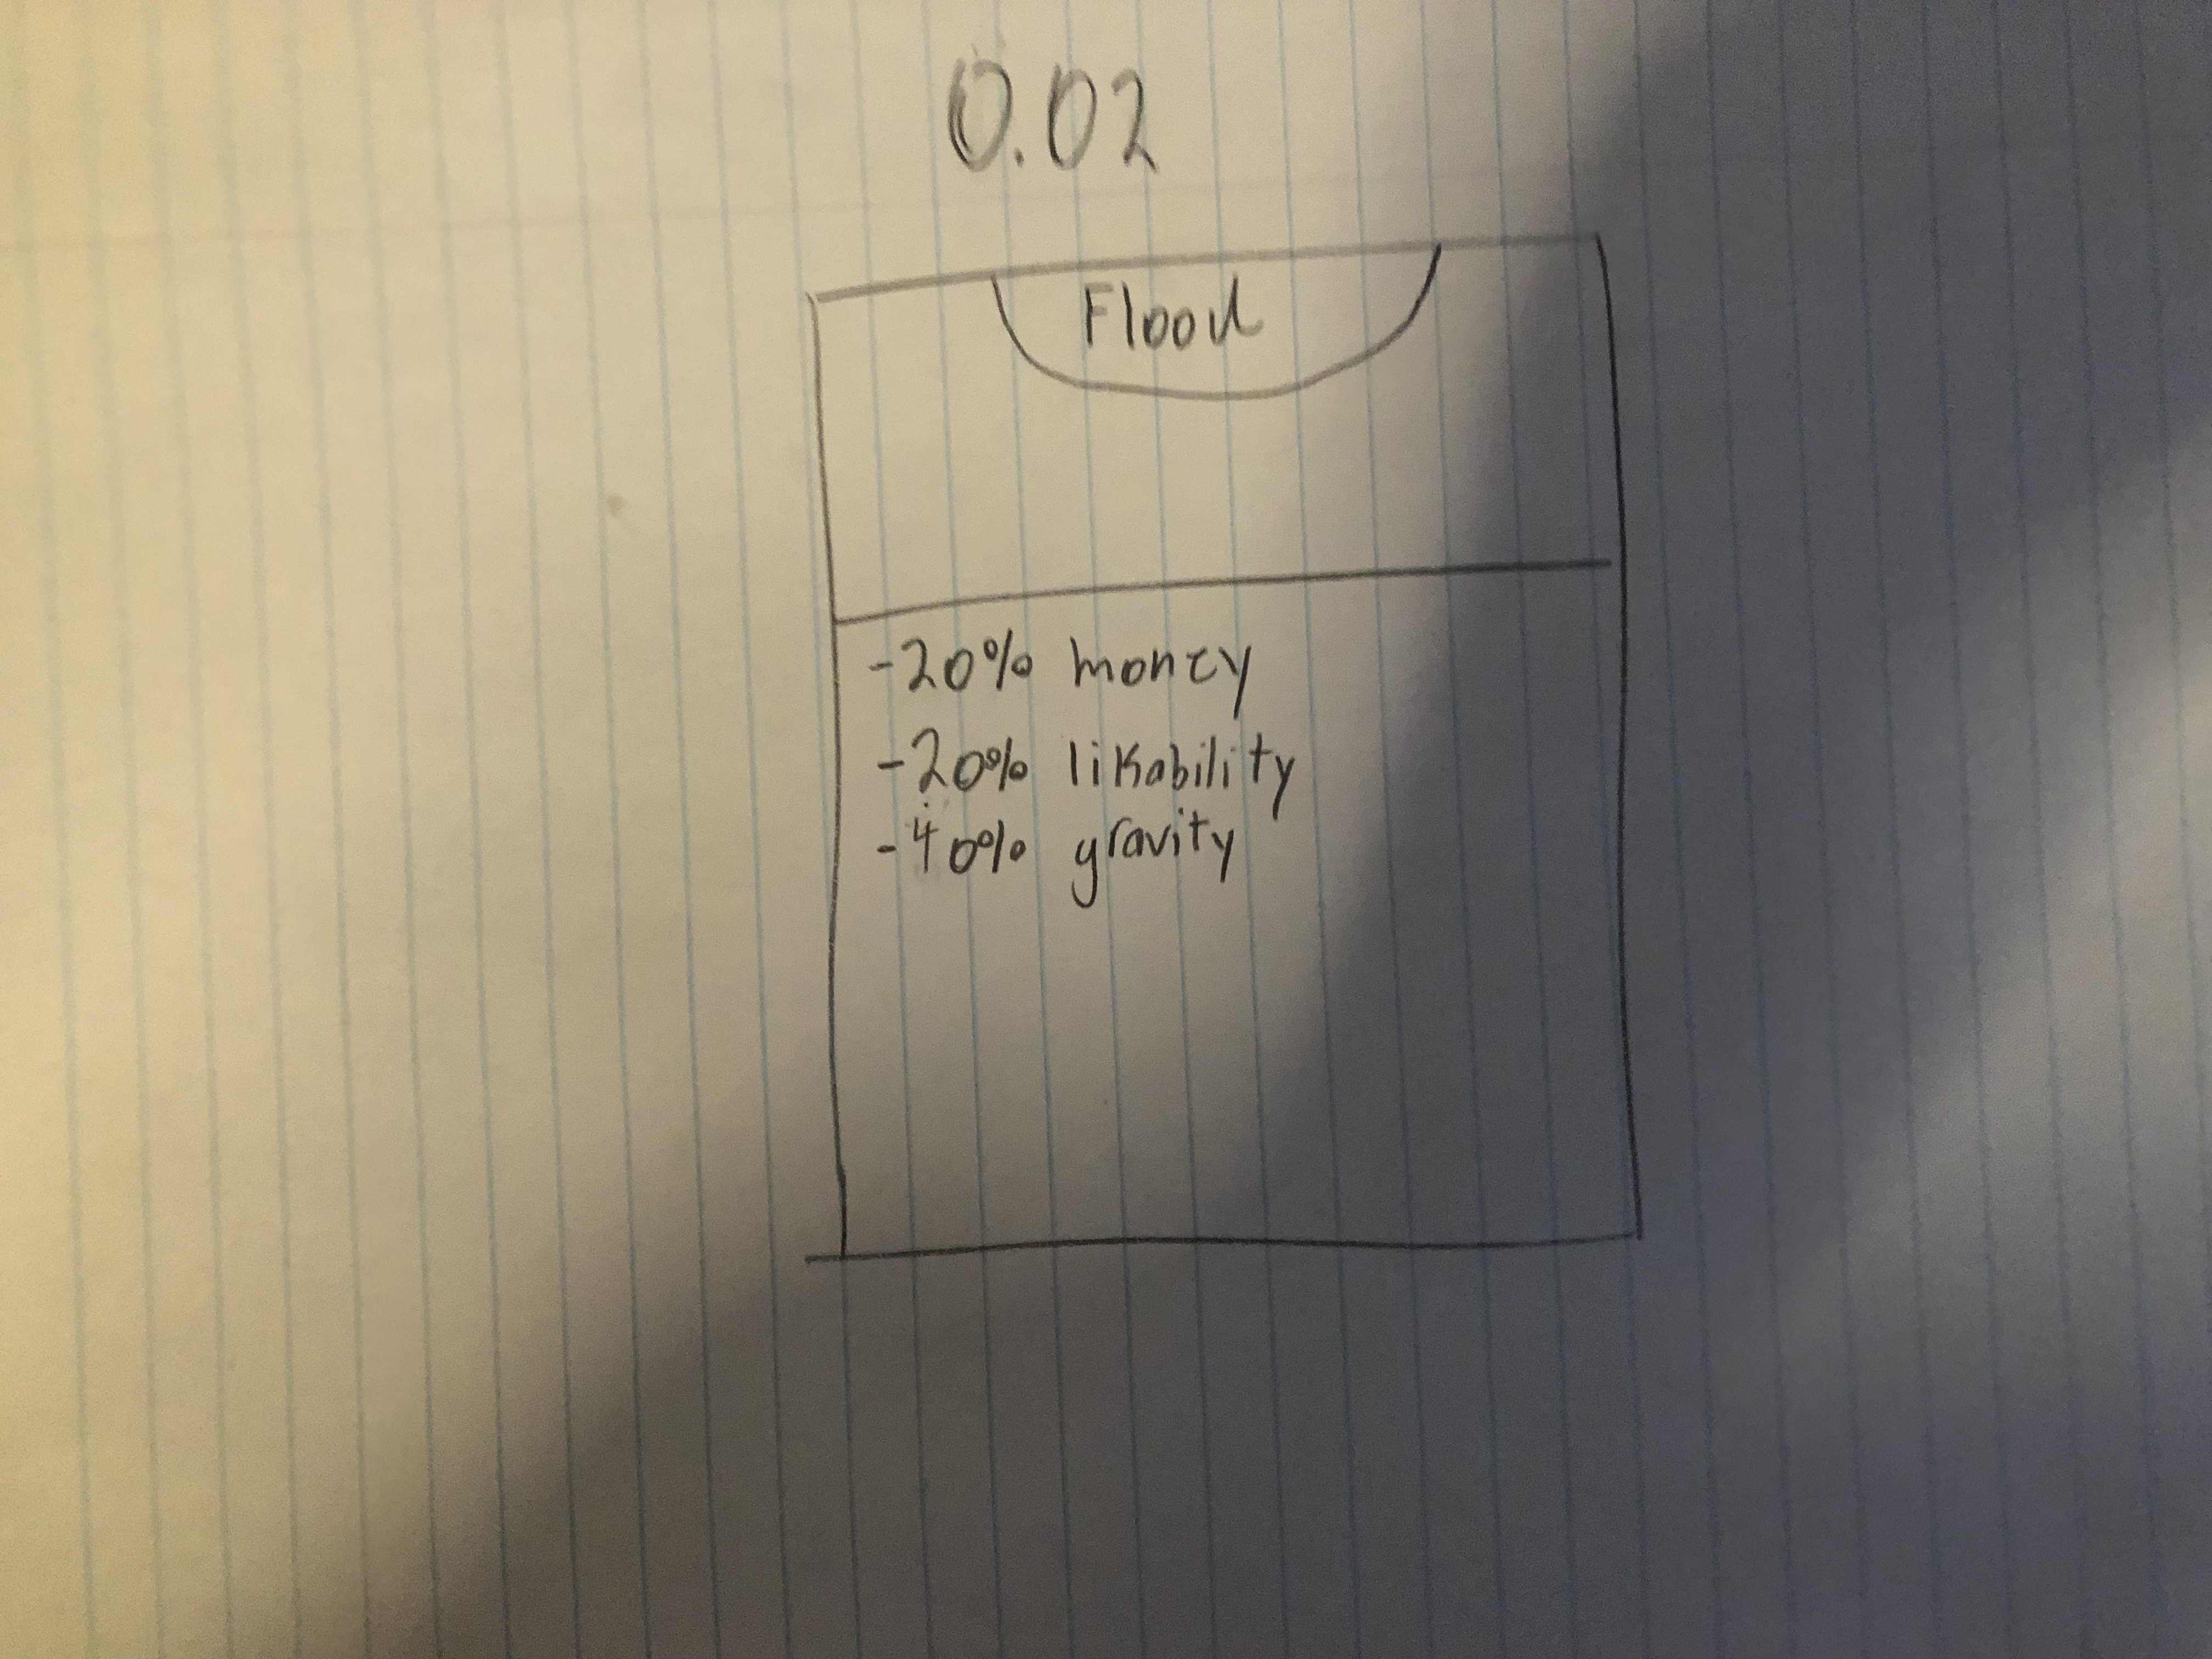 0.02
Flood
-20% money
-20% likability
-40% gravity